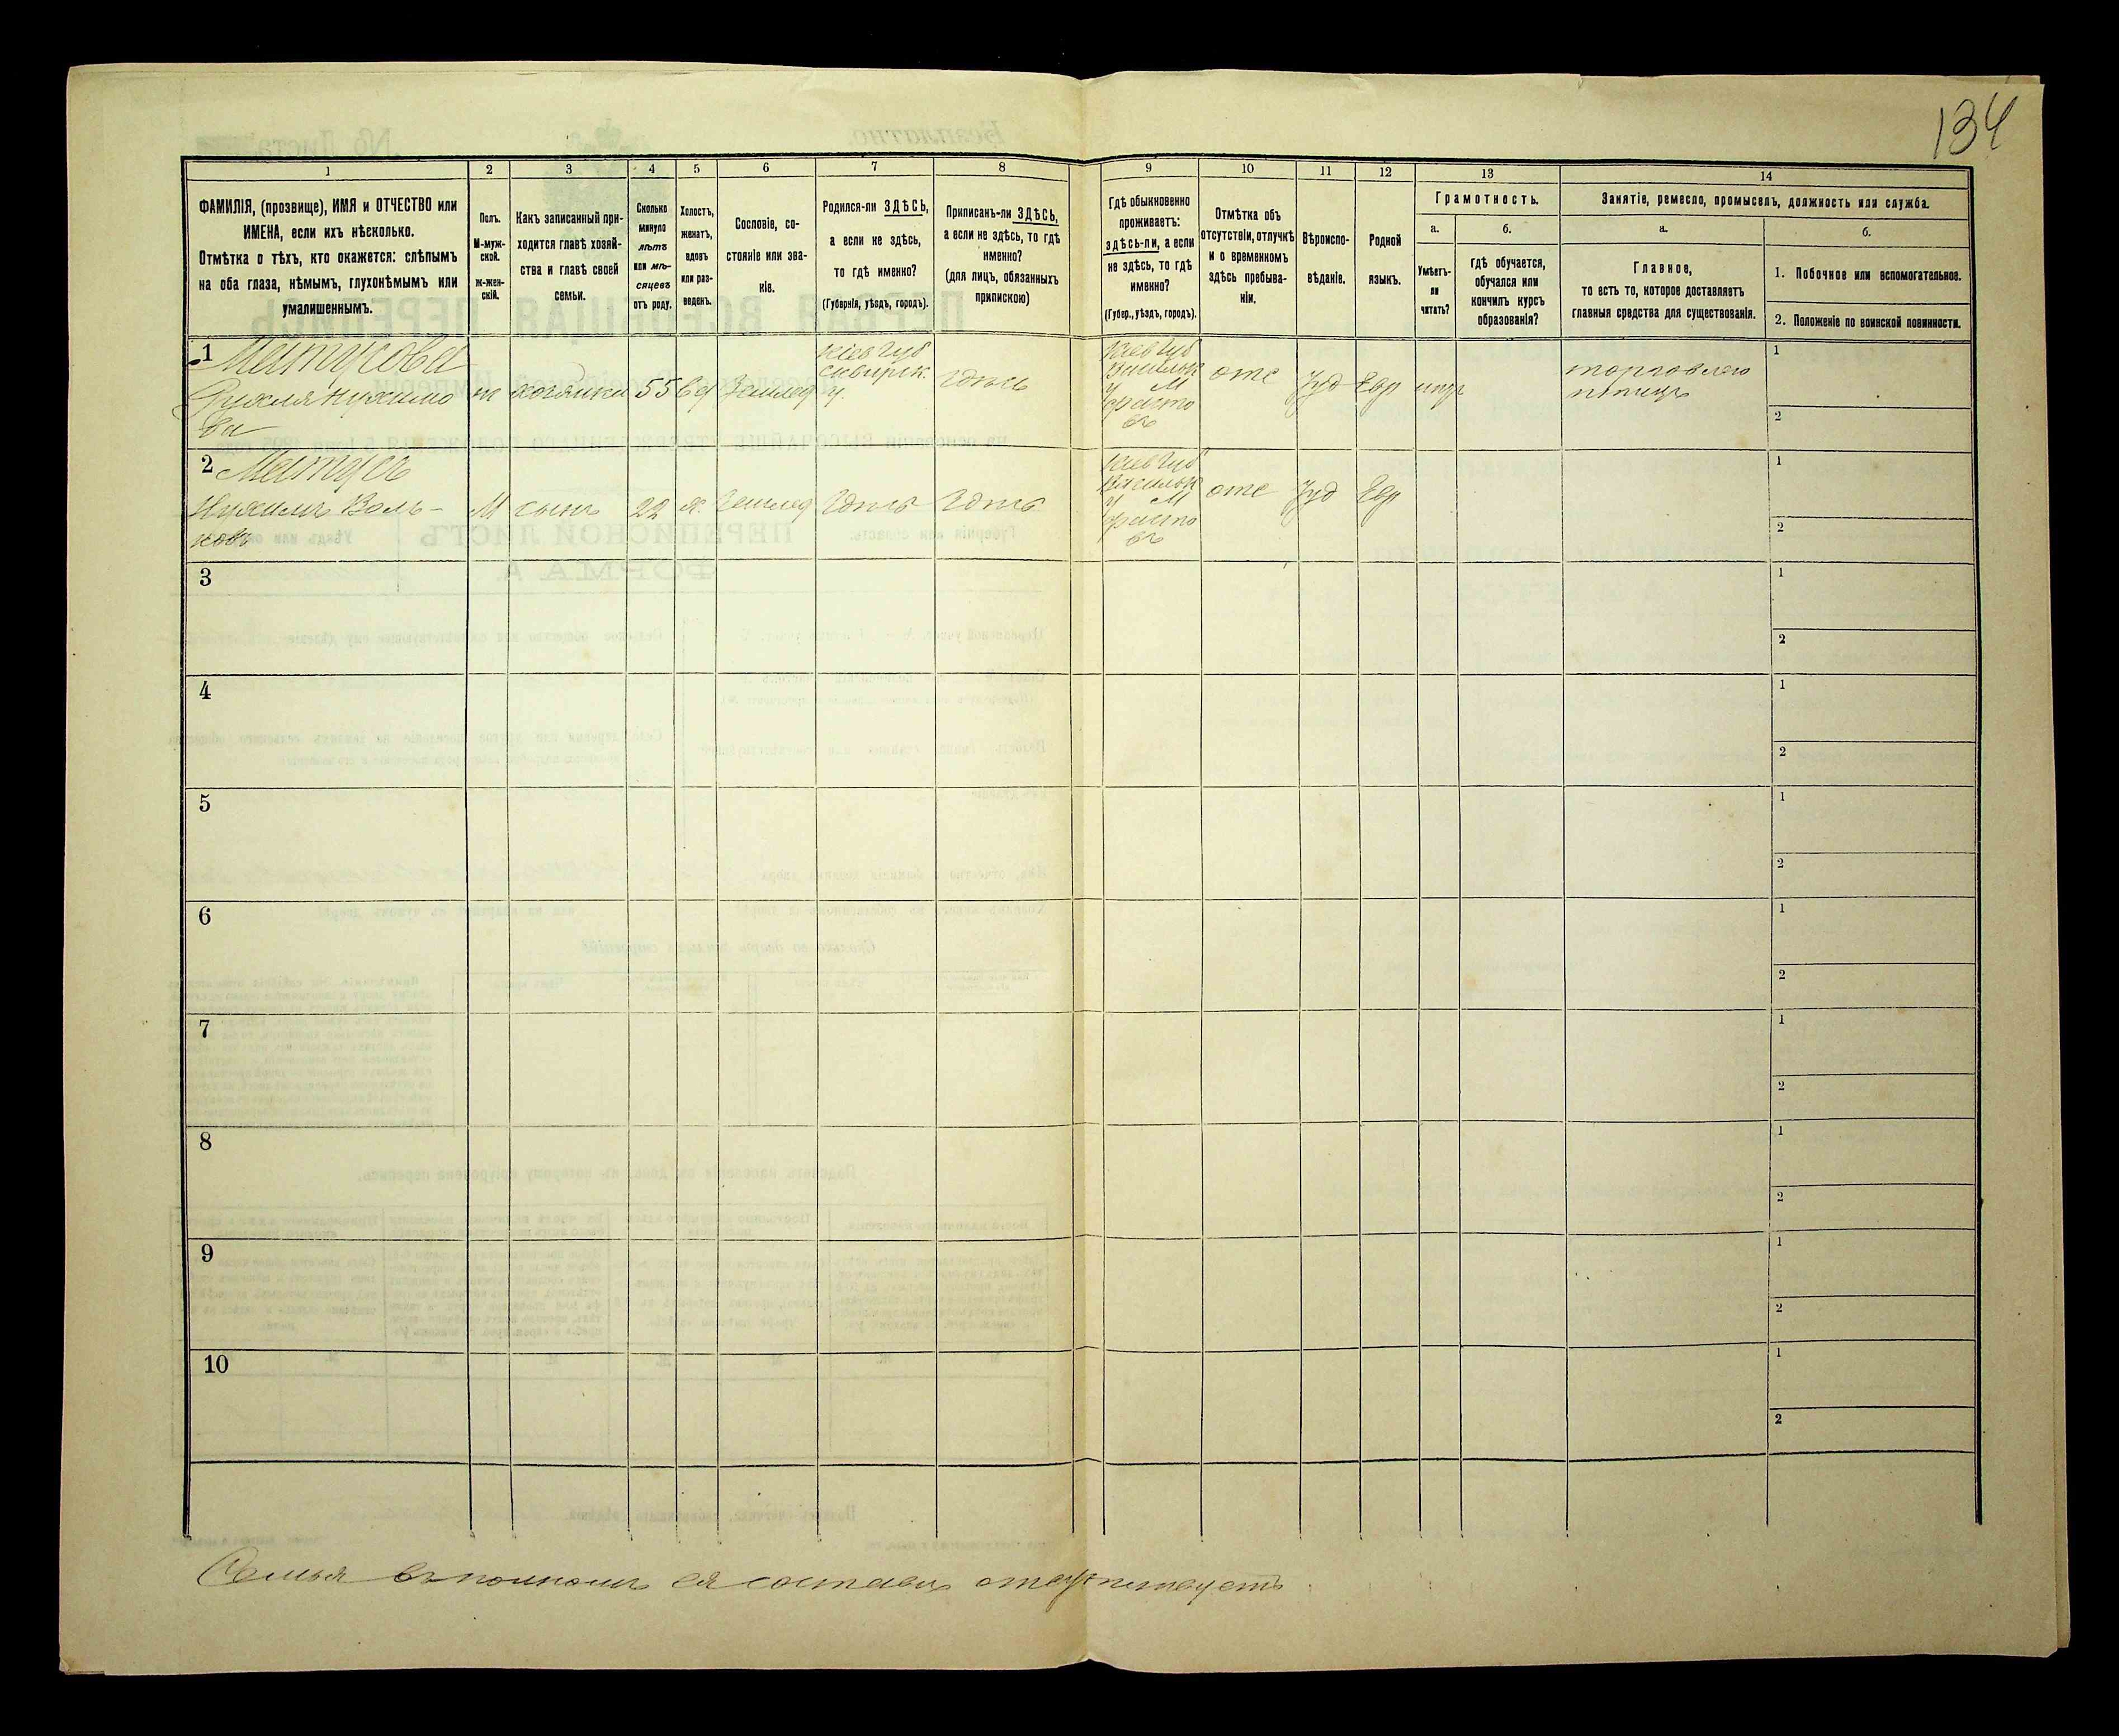 134
1 2 3 4 5 6 7 8 9 10 11 12 13 14
ФАМИЛІЯ, (прозвище), ИМЯ и ОТЧЕСТВО или
ИМЕНА, если ихъ нѣсколько.
Отмѣтка о тѣхъ, кто окажется: слѣпымъ
на оба глаза, нѣмымъ, глухонѣмымъ или
умалишеннымъ.
Полъ.
М-муж-
ской.
Ж-жен-
скій.
Какъ записанный при-
ходится главѣ хозяй-
ства и главѣ своей
семьи.
Сколько
минуло
лѣтъ
или мѣ-
сяцевъ
отъ роду.
Холостъ,
женатъ,
вдовъ
или раз-
веденъ.
Сословіе, со-
стояніе или зва-
ніе.
Родился-ли ЗДѢСЬ,
а если не здѣсь,
то гдѣ именно?
(Губернія, уѣздъ, городъ).
Приписанъ-ли ЗДѢСЬ,
а если не здѣсь, то гдѣ
именно?
(для лицъ, обязанныхъ
припискою)
Гдѣ обыкновенно
проживаетъ:
здѣсь-ли, а если
не здѣсь, то гдѣ
именно?
(Губер., уѣздъ, городъ).
Отмѣтка объ
отсутствіи, отлучкѣ
и о временномъ
здѣсь пребыва-
ніи.
Вѣроиспо-
вѣданіе.
Родной
языкъ.
Грамотность.
а.
Умѣетъ-
ли
читать?
б.
гдѣ обучается,
обучался или
кончилъ курсъ
образованія?
Занятіе, ремесло, промыселъ, должность или служба.
а.
Главное,
то есть то, которое доставляетъ
главныя средства для существованія.
б.
1. Побочное или вспомогательное.
2. Положеніе по воинской повинности.
1 Матусова
Рухля Нухимо
ва
хозяйка
55
вд
Землед
Кіев Губ
Сквирск.
у.
Здѣсь
Кіев Губ
Васильк
у М
Фасто
въ
отс
Іуд
Евр
торговлею
птицъ
1
2
2 Матусъ
Нухимъ Воль-
ковъ
М
сынъ
22
х.
Землед
Здѣсь
Здѣсь
Кіев Губ
Васильк
у М
Фасто
въ
отс
Іуд
Евр
1
2
3
1
2
4
1
2
5
1
2
6
1
2
7
1
2
8
1
2
9
1
2
10
1
2
Семья въ полномъ ея составѣ отсутствуетъ